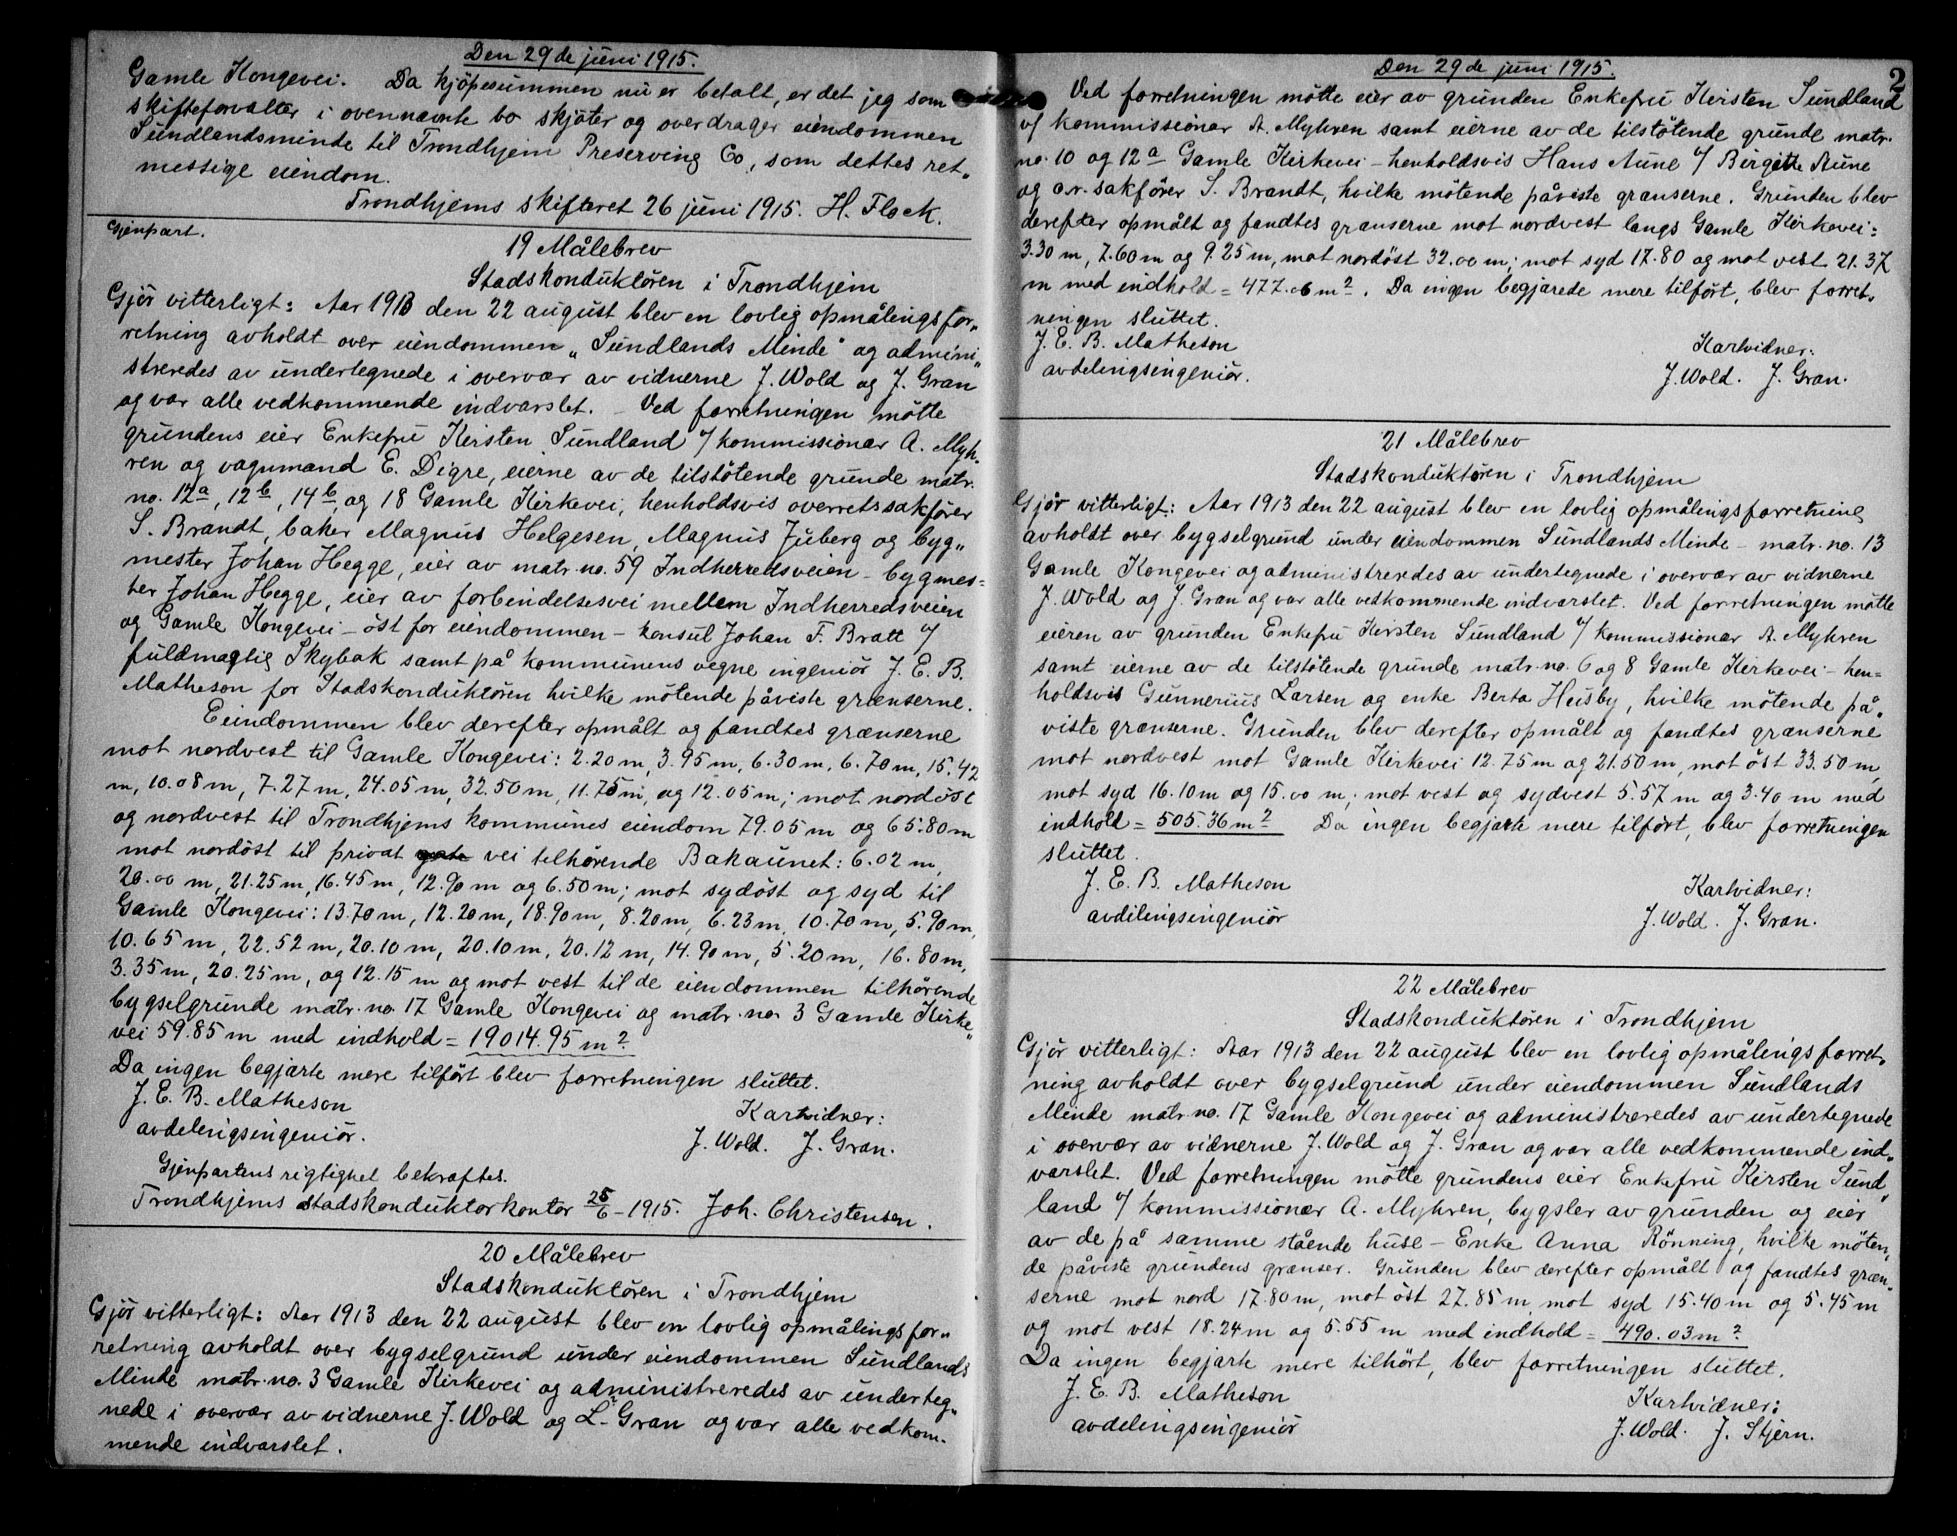 Den 29de juni 1915.
Gamle Kongevei. Da kjöpesummen nu er betalt, er det jeg som
skifteforvalter i ovennævnte bo skjöter og overdrager eiendommen
Sundlandsminde til Trondhjem Preserving Co, som dettes ret„
messige eiendom.
Trondhjems skifteret 26 juni 1915. H. Flock.
Gjenpart.
19 Målebrev
Stadskonduktören i Trondhjem
Gjör vitterligt: Aar 1913 den 22 august blev en lovlig opmålingsfor„
retning avholdt over eiendommen „Sundlands Minde" og admini„
streredes av undertegnede i overvær av vidnerne J. Wold og J. Gran
og var alle vedkommende indvarslet. – Ved forretningen mötte
grundens eier Enkefru Kirsten Sundland v/ kommissionær A. Myh„
ren og vognmand E. Digre, eierne av de tilstötende grunde matr.
no. 12a, 12b, 14b, og 18 Gamle Kirkevei, henholdsvis overretssakförer
S. Brandt, baker Magnus Helgesen, Magnus Juberg og byg„
mester Johan Hegge, eier av matr. no. 59 Indherredsveien – bygmes=
ter Johan Hegge, eier av forbindelsesvei mellem Indherredsveien
og Gamle Kongevei – öst for eiendommen – konsul Johan F. Bratt v/
fuldmægtig Skybak samt på kommunens vegne ingeniör J. E. B.
Matheson for Stadskonduktören hvilke mötende påviste grænserne.
Eiendommen blev derefter opmålt og fandtes grænserne
mot nordvest til Gamle Kongevei: 2.20 m, 3.95 m, 6.30 m, 6.70 m, 15.42
m, 10.08 m, 7.27 m, 24.05 m, 32.50 m, 11.75 m, og 12.05 m; mot nordöst
og nordvest til Trondhjems kommunes eiendom 79.05 m og 65.80 m
mot nordöst til privat vei tilhörende Bakaunet: 6.02 m,
20.00 m, 21.25 m, 16.45 m, 12.90 m og 6.50 m; mot sydöst og syd til
Gamle Kongevei: 13.70 m, 12.20 m, 18.90 m, 8.20 m, 6.23 m, 10.70 m, 5.90 m,
10.65 m, 22.52 m, 20.10 m, 20.10 m, 20.12 m, 14.90 m, 5.20 m, 16.80 m,
3.35 m, 20.25 m, og 12.15 m og mot vest til de eiendommen tilhörende
bygselgrunde matr. no. 17 Gamle Kongevei og matr. no. 3 Gamle Kirke„
vei 59.85 m med indhold = 19014.95 m2
Da ingen begjærte mere tilfört blev forretningen sluttet.
J. E. B. Matheson Kartvidner:
avdelingsingeniör. J. Wold. J. Gran.
Gjenpartens rigtighet bekræftes.
Trondhjems stadskonduktorkontor 25/6 – 1915. Joh. Christensen.
20 Målebrev
Stadskonduktören i Trondhjem
Gjör vitterligt: Aar 1913 den 22 august blev en lovlig opmålingsfor„
retning avholdt over bygselgrund under eiendommen Sundlands
Minde matr. no. 3 Gamle Kirkevei og administreredes av underteg„
nede i overvær av vidnerne J. Wold og L. Gran og var alle vedkom„
mende indvarslet.
Den 29de juni 1915.
2
Ved forretningen mötte eier av grunden Enkefru Kirsten Sundland
v/ kommissionær A. Myhren samt eierne av de tilstötende grunde matr.
no. 10 og 12a Gamle Kirkevei – henholdsvis Hans Aune v/ Birgitte Aune
og o.r. sakförer S. Brandt, hvilke mötende påviste grænserne. Grunden blev
derefter opmålt og fandtes grænserne mot nordvest langs Gamle Kirkevei:
3.30 m, 7.60 m og 9.25 m, mot nordöst 32.00 m; mot syd 17.80 og mot vest 21.37
m med indhold = 477.06 m2. Da ingen begjærede mere tilfört, blev forret„
ningen sluttet.
J. E. B. Matheson Kartvidner:
avdelingsingeniör. J. Wold. J. Gran.
21 Målebrev
Stadskonduktören i Trondhjem
Gjör vitterligt: Aar 1913 den 22 august blev en lovlig opmålingsforretning
avholdt over bygselgrund under eiendommen Sundlands Minde – matr. no. 13
Gamle Kongevei og administreredes av undertegnede i overvær av vidnerne
J. Wold og J. Gran og var alle vedkommende indvarslet. Ved forretningen mötte
eieren av grunden Enkefru Kirsten Sundland v/ kommissionær A. Myhren
samt eierne av de tilstötende grunde matr. no. 6 og 8 Gamle Kirkevei – hen=
holdsvis Gunnerius Larsen og enke Berta Heisby, hvilke mötende på„
viste grænserne. Grunden blev derefter opmålt og fandtes grænserne
mot nordvest mot Gamle Kirkevei 12.75 m og 21.50 m, mot öst 33.50 m,
mot syd 16.10 m og 15.00 m; mot vest og sydvest 5.57 m og 3.40 m med
indhold = 505.36 m2 Da ingen begjærte mere tilfört, blev forretningen
sluttet.
J. E. B. Matheson Kartvidner:
avdelingsingeniör J. Wold. J. Gran.
22 Målebrev
Stadskonduktören i Trondhjem
Gjör vitterligt: Aar 1913 den 22 august blev en lovlig opmålingsforret„
ning avholdt over bygselgrund under eiendommen Sundlands
Minde matr. no. 17 Gamle Kongevei og administreredes av undertegnede
i overvær av vidnerne J. Wold og J. Gran og var alle vedkommende ind„
varslet. Ved forretningen mötte grundens eier Enkefru Kirsten Sund„
land v/ kommissionær A. Myhren, bygsler av grunden og eier
av de på samme stående huse – Enke Anna Rönning, hvilke möten„
de påviste grundens grænser. Grunden blev derefter opmålt og fandtes græn„
serne mot nord 17.80 m, mot öst 27.85 m, mot syd 15.40 m og 5.45 m
og mot vest 18.24 m og 5.55 m med indhold = 490.03 m2
Da ingen begjærte mere tilhört, blev forretningen sluttet.
J. E. B. Matheson Kartvidner:
avdelingsingeniör J. Wold. J. Stjern.